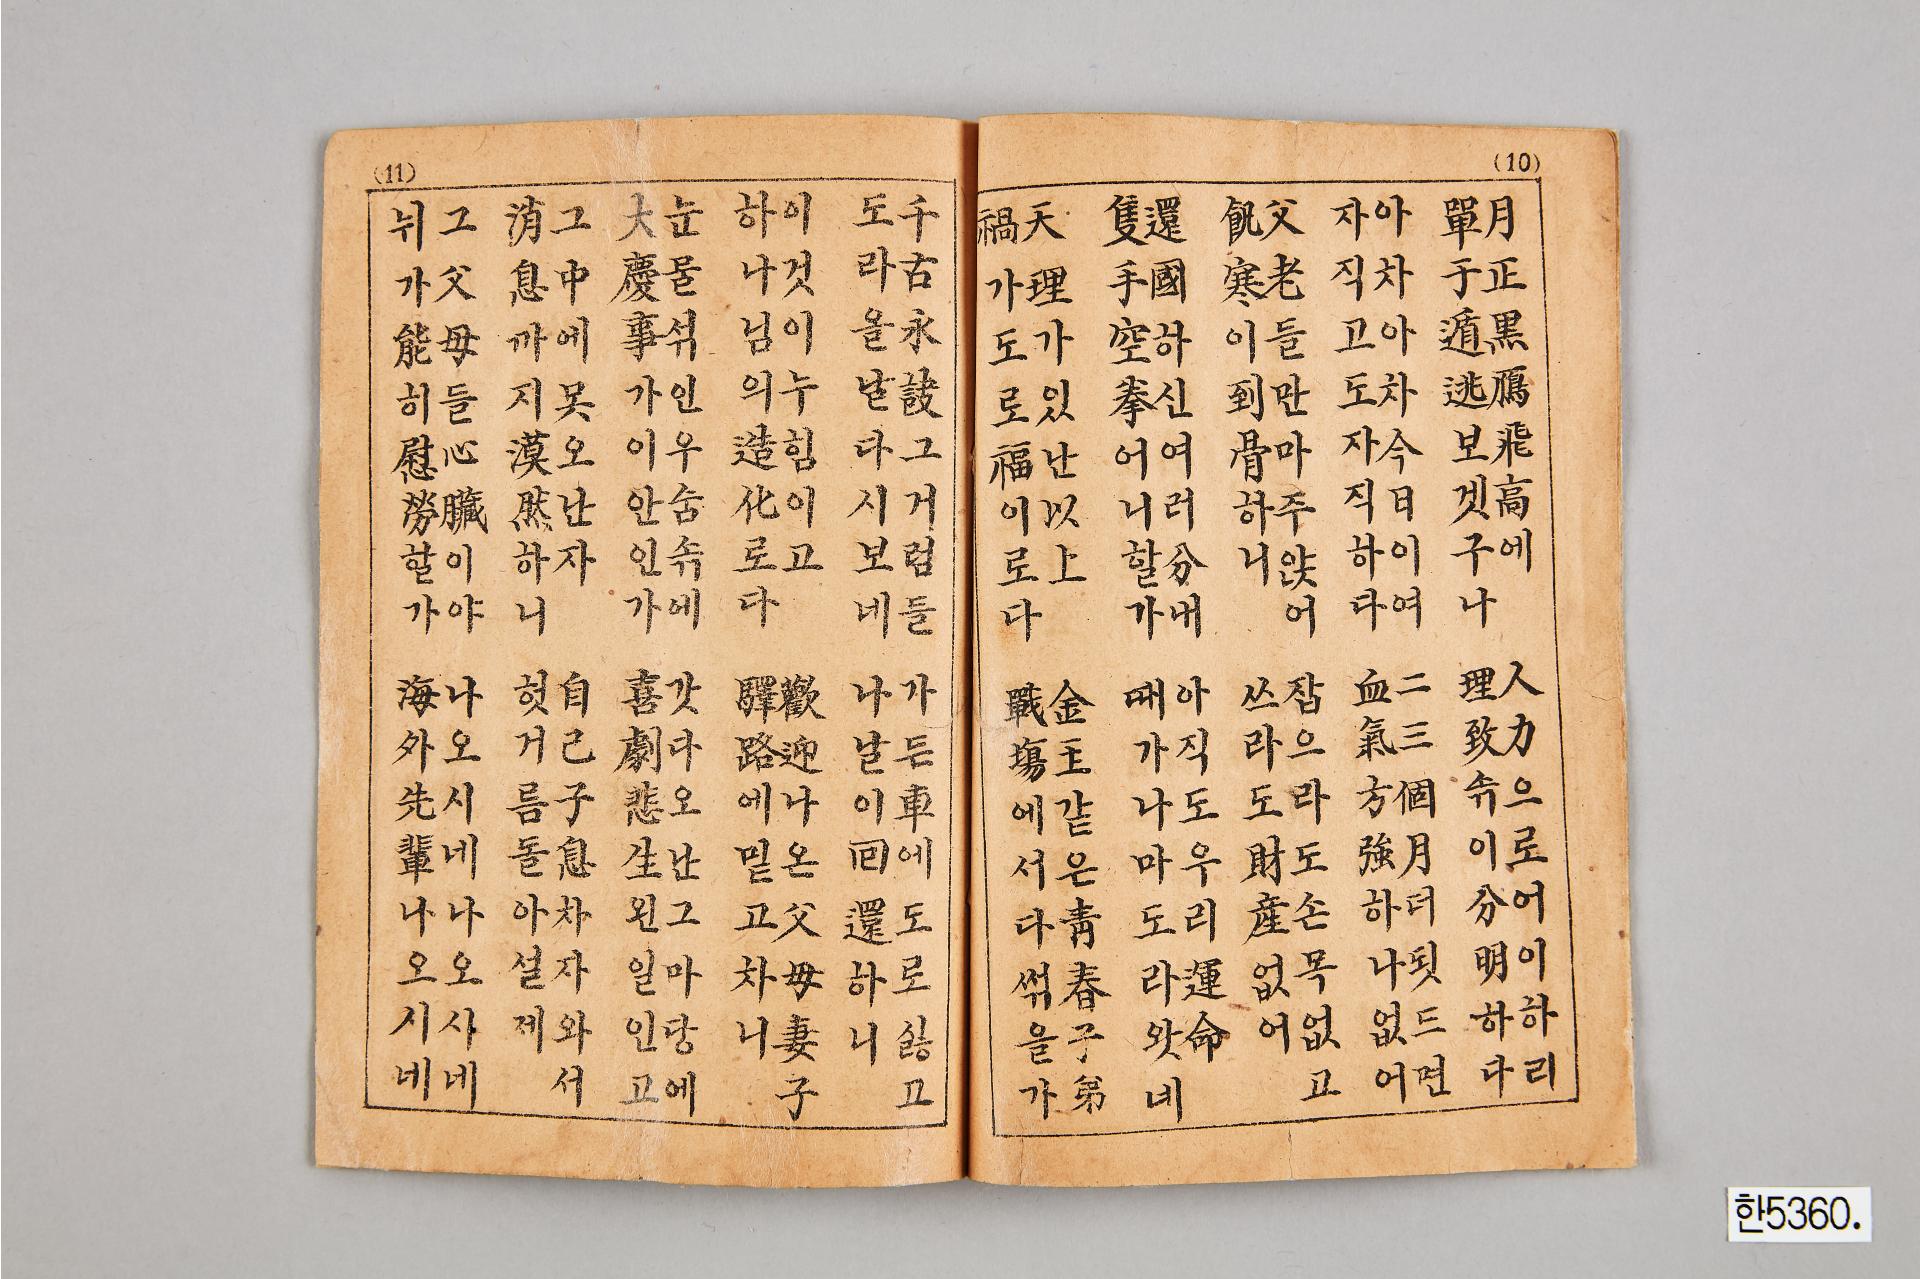 (10)
月正黑鴈飛高에
單于遁逃보겟구나
人力으로어이하리
理致솎이分明하다
아차아차今日이여
자직고도자직하다
二三個月더됫드면
血氣方強하나없어
父老들만마주앉어
飢寒이到骨하니
잡으라도손목없고
쓰라도財産없어
還國하신여러分내
隻手空拳어니할가
아직도우리運命
때가나마도라왓네
天理가있난以上
禍가도로福이로다
金主같은靑春子弟
戰塲에서다썪을가
(11)
千古永訣그거럼들
도라올날다시보네
가든車에도로싫고
나날이回還하니
이것이누힘이고
하나님의造化로다
歡迎나온父母妻子
驛路에믿고차니
눈물섞인우숨솎에
大慶事가이안인가
갓다오난그마당에
喜劇悲生왼일인고
그中에못오난자
消息까지漠然하니
自己子息차자와서
헛거름돌아설제
그父母들心臟이야
뉘가能히慰勞할가
나오시네나오사네
海外先輩나오시네
한5360.